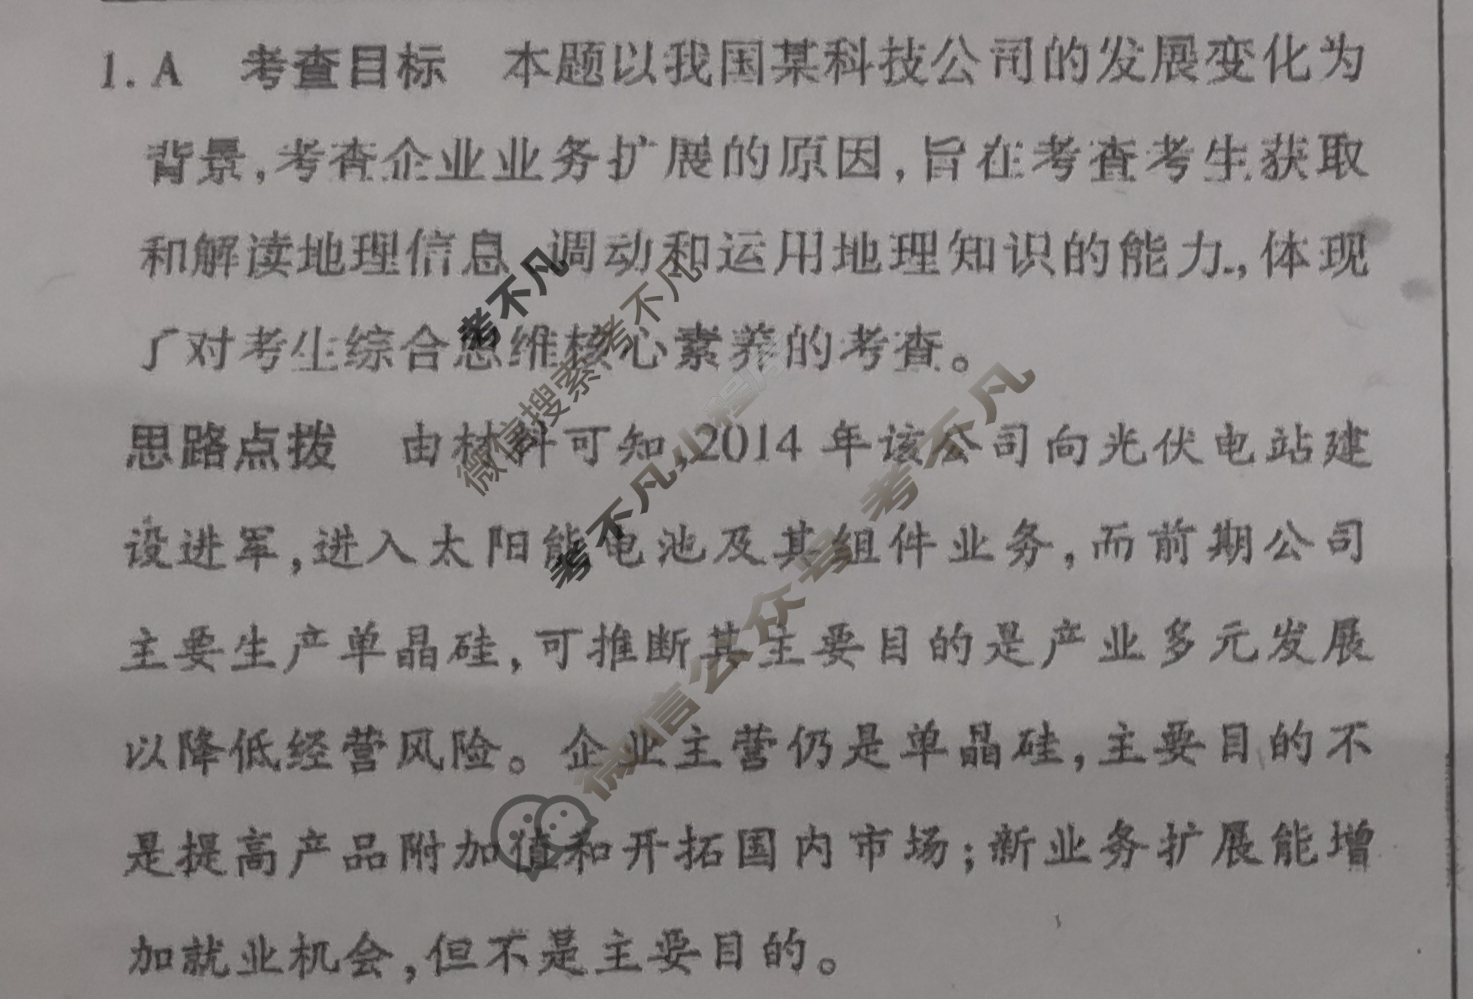 1. A 考查目标 本题以我国某科技公司的发展变化为
背景,考查企业业务扩展的原因,旨在考查考生获取
和解读地理信息、调动和运用地理知识的能力,体现
了对考生综合思维核心素养的考查。
思路点拨 由材料可知,2014年该公司向光伏电站建
设进军,进入太阳能电池及其组件业务,而前期公司
主要生产单晶硅,可推断其主要目的是产业多元发展
以降低经营风险。企业主营仍是单晶硅,主要目的不
是提高产品附加值和开拓国内市场;新业务扩展能增
加就业机会,但不是主要目的。
考不凡
微信搜索 考不凡
考不凡小程序
微信公众号 考不凡